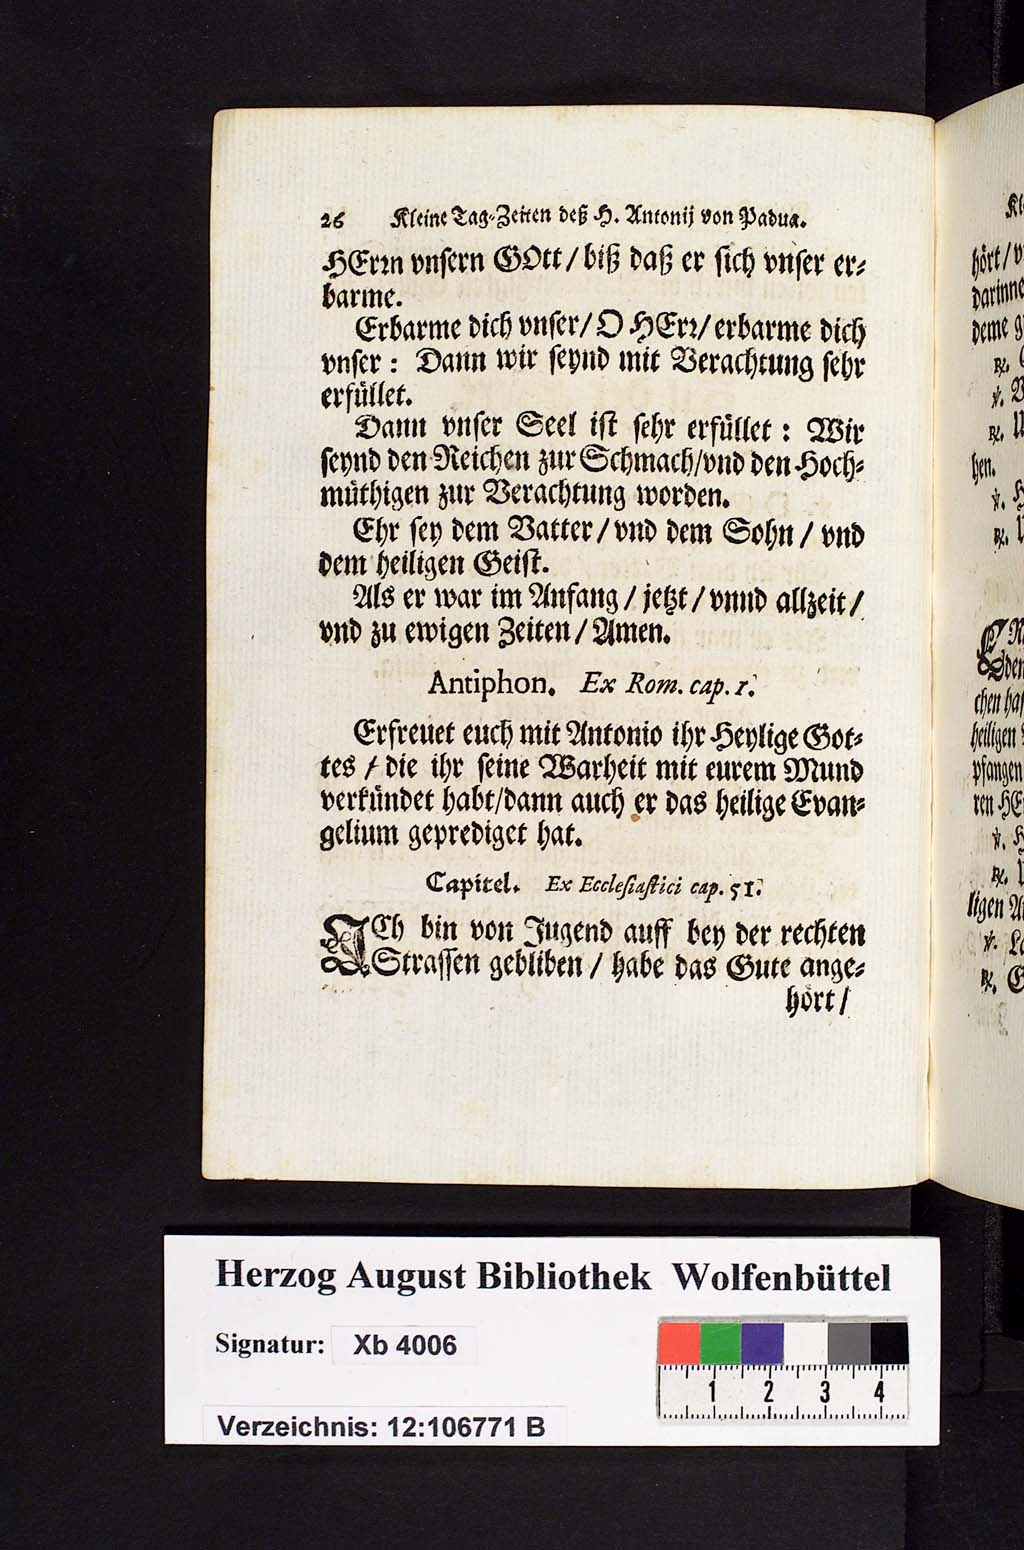 26 Kleine Tag-Zeiten deß H. Antonij von Padua.
HErrn vnsern GOtt / biß daß er sich vnser er-
barme.
Erbarme dich vnser / O HErr / erbarme dich
vnser : Dann wir seynd mit Verachtung sehr
erfüllet.
Dann vnser Seel ist sehr erfüllet : Wir
seynd den Reichen zur Schmach / vnd den Hoch-
müthigen zur Verachtung worden.
Ehr sey dem Vatter / vnd dem Sohn / vnd
dem heiligen Geist.
Als er war im Anfang / jetzt / vnnd allzeit /
vnd zu ewigen Zeiten / Amen.
Antiphon. Ex Rom. cap. 1.
Erfreuet euch mit Antonio ihr Heylige Got-
tes / die ihr seine Warheit mit eurem Mund
verkündet habt / dann auch er das heilige Evan-
gelium geprediget hat.
Capitel. Ex Ecclesiastici cap. 51.
ICh bin von Jugend auff bey der rechten
Strassen gebliben / habe das Gute ange-
hört /
hört / v
darinne
deme g
℟.
℣. V
℟. U
hen.
℣. H
℟.
den
chen has
heiligen
pfangen
ren HE
℣. H
℟.
ligen A
℣. La
℟. G
Herzog August Bibliothek Wolfenbüttel
Signatur: Xb 4006
1 2 3 4
Verzeichnis: 12:106771 B